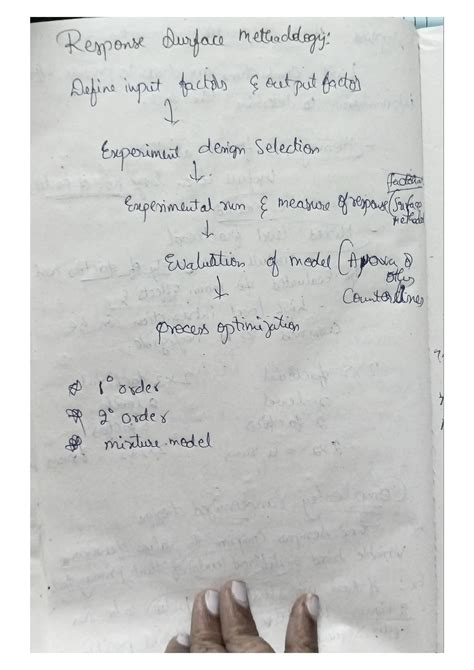 Response Surface methodology:
Define input factors & output factors
↓
Experiment design Selection
↓
Experimental run & measure of response (Surface
method
↓
Evaluation of model (Anova &
other
Counter lines
↓
process optimization
1° order
2° order
mixture model